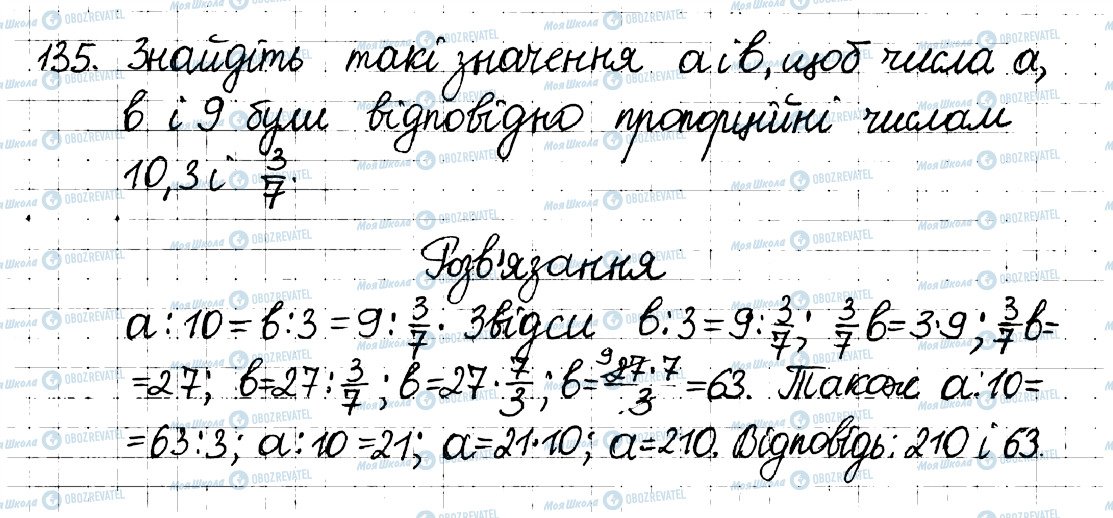 135. Знайдіть такі значення a і в, щоб числа a,
в і 9 були відповідно пропорційні числам
10, 3 і 3/7.
Розв'язання
a : 10 = в : 3 = 9 : 3/7. Звідси в : 3 = 9 : 3/7; 3/7 в = 3·9; 3/7 в =
= 27; в = 27 : 3/7; в = 27 · 7/3; в = 9 27·7/3 = 63. Також a : 10 =
= 63 : 3; a : 10 = 21; a = 21·10; a = 210. Відповідь: 210 і 63.
Моя Школа OBOZREVATEL